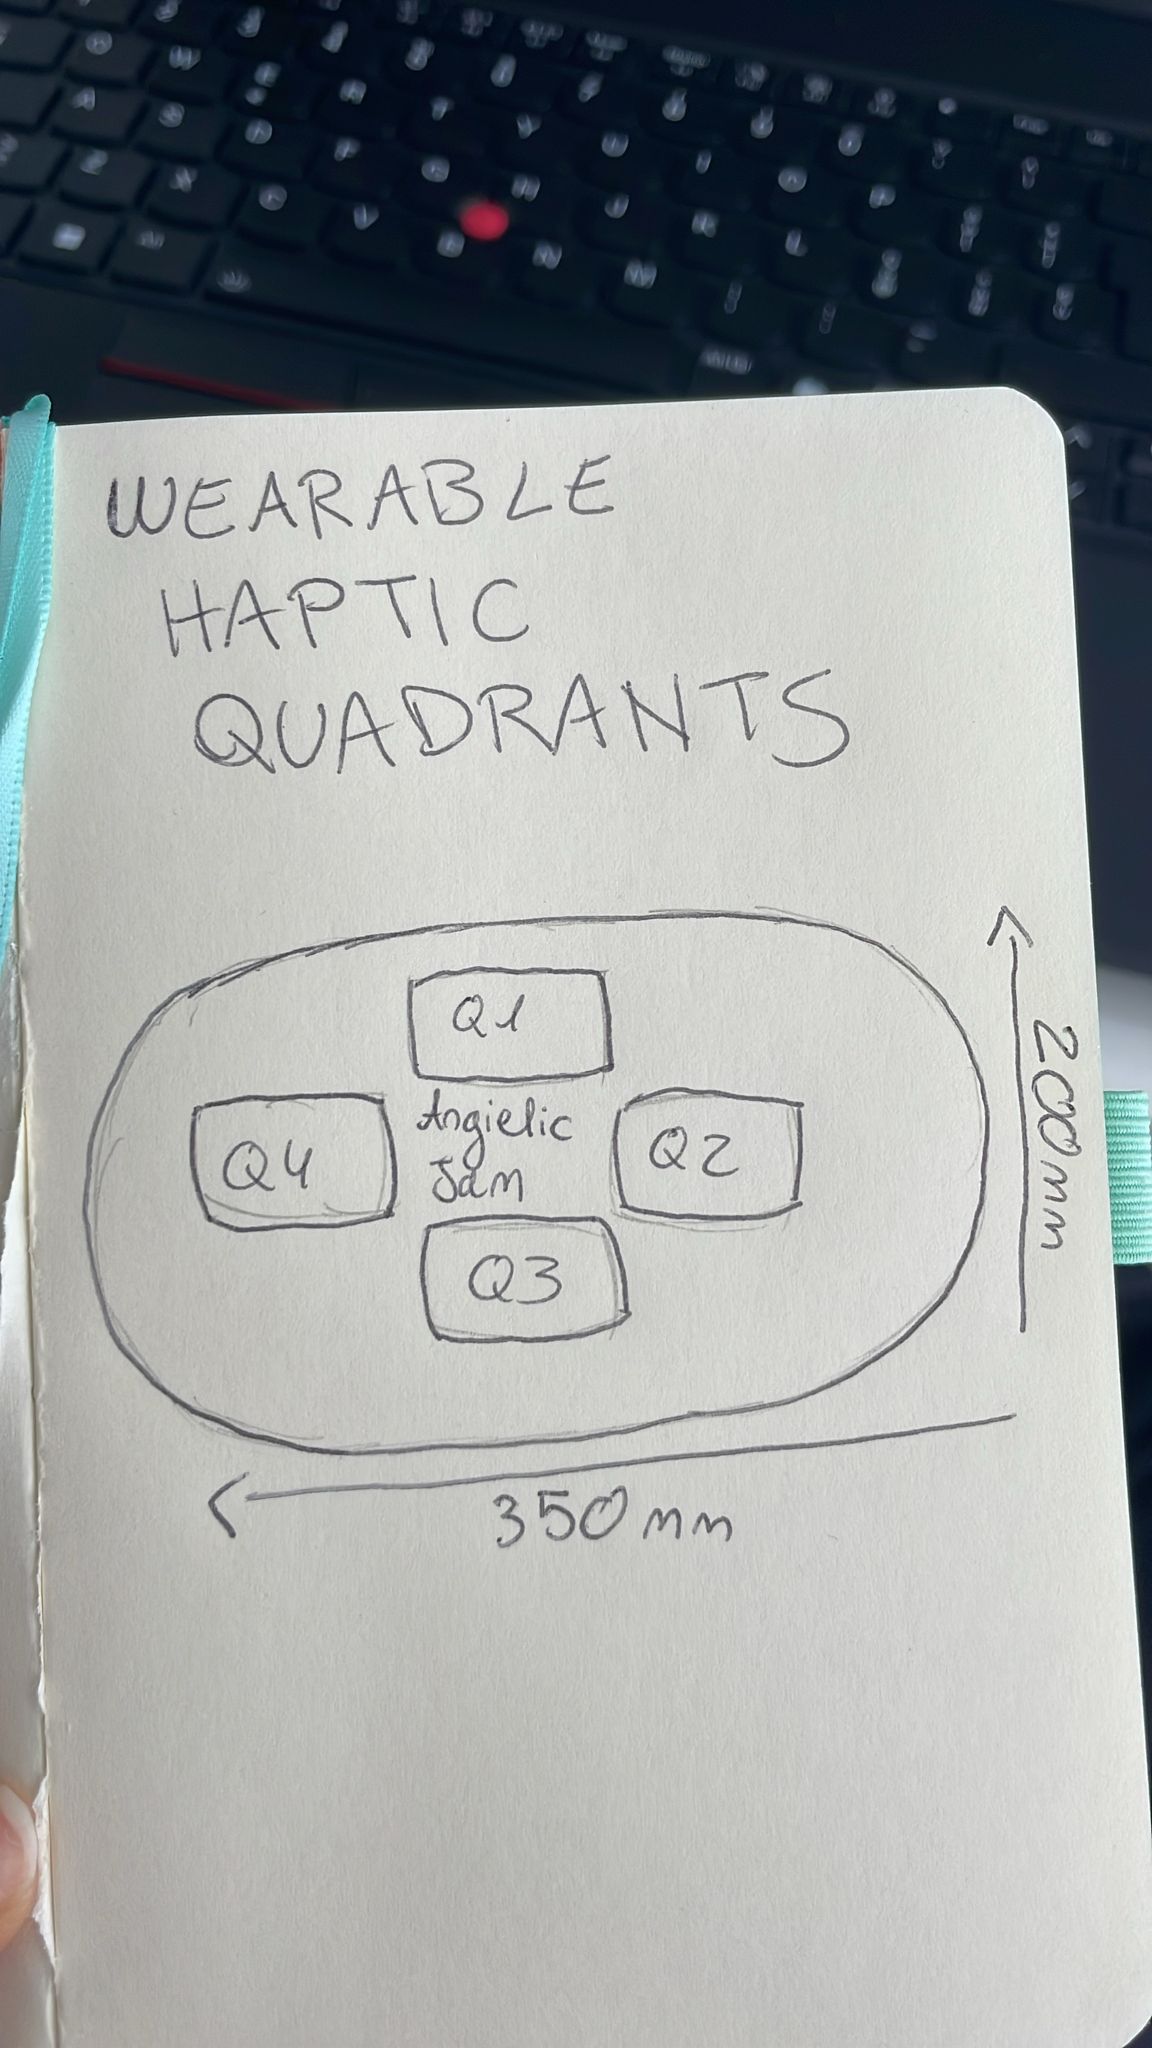 WEARABLE
HAPTIC
QUADRANTS
Q1
Q4
Angielic
Jam
Q2
Q3
200mm
350mm